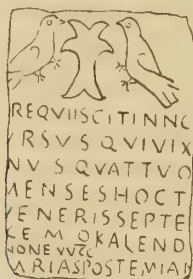 REQVIISCITINNC
VRSVSQVIVIX
NVSQVATTVO
MENSESHOCT
VENERISSEPTE
CEMOKALEND
IONE
ARIASPOSTEMIAI